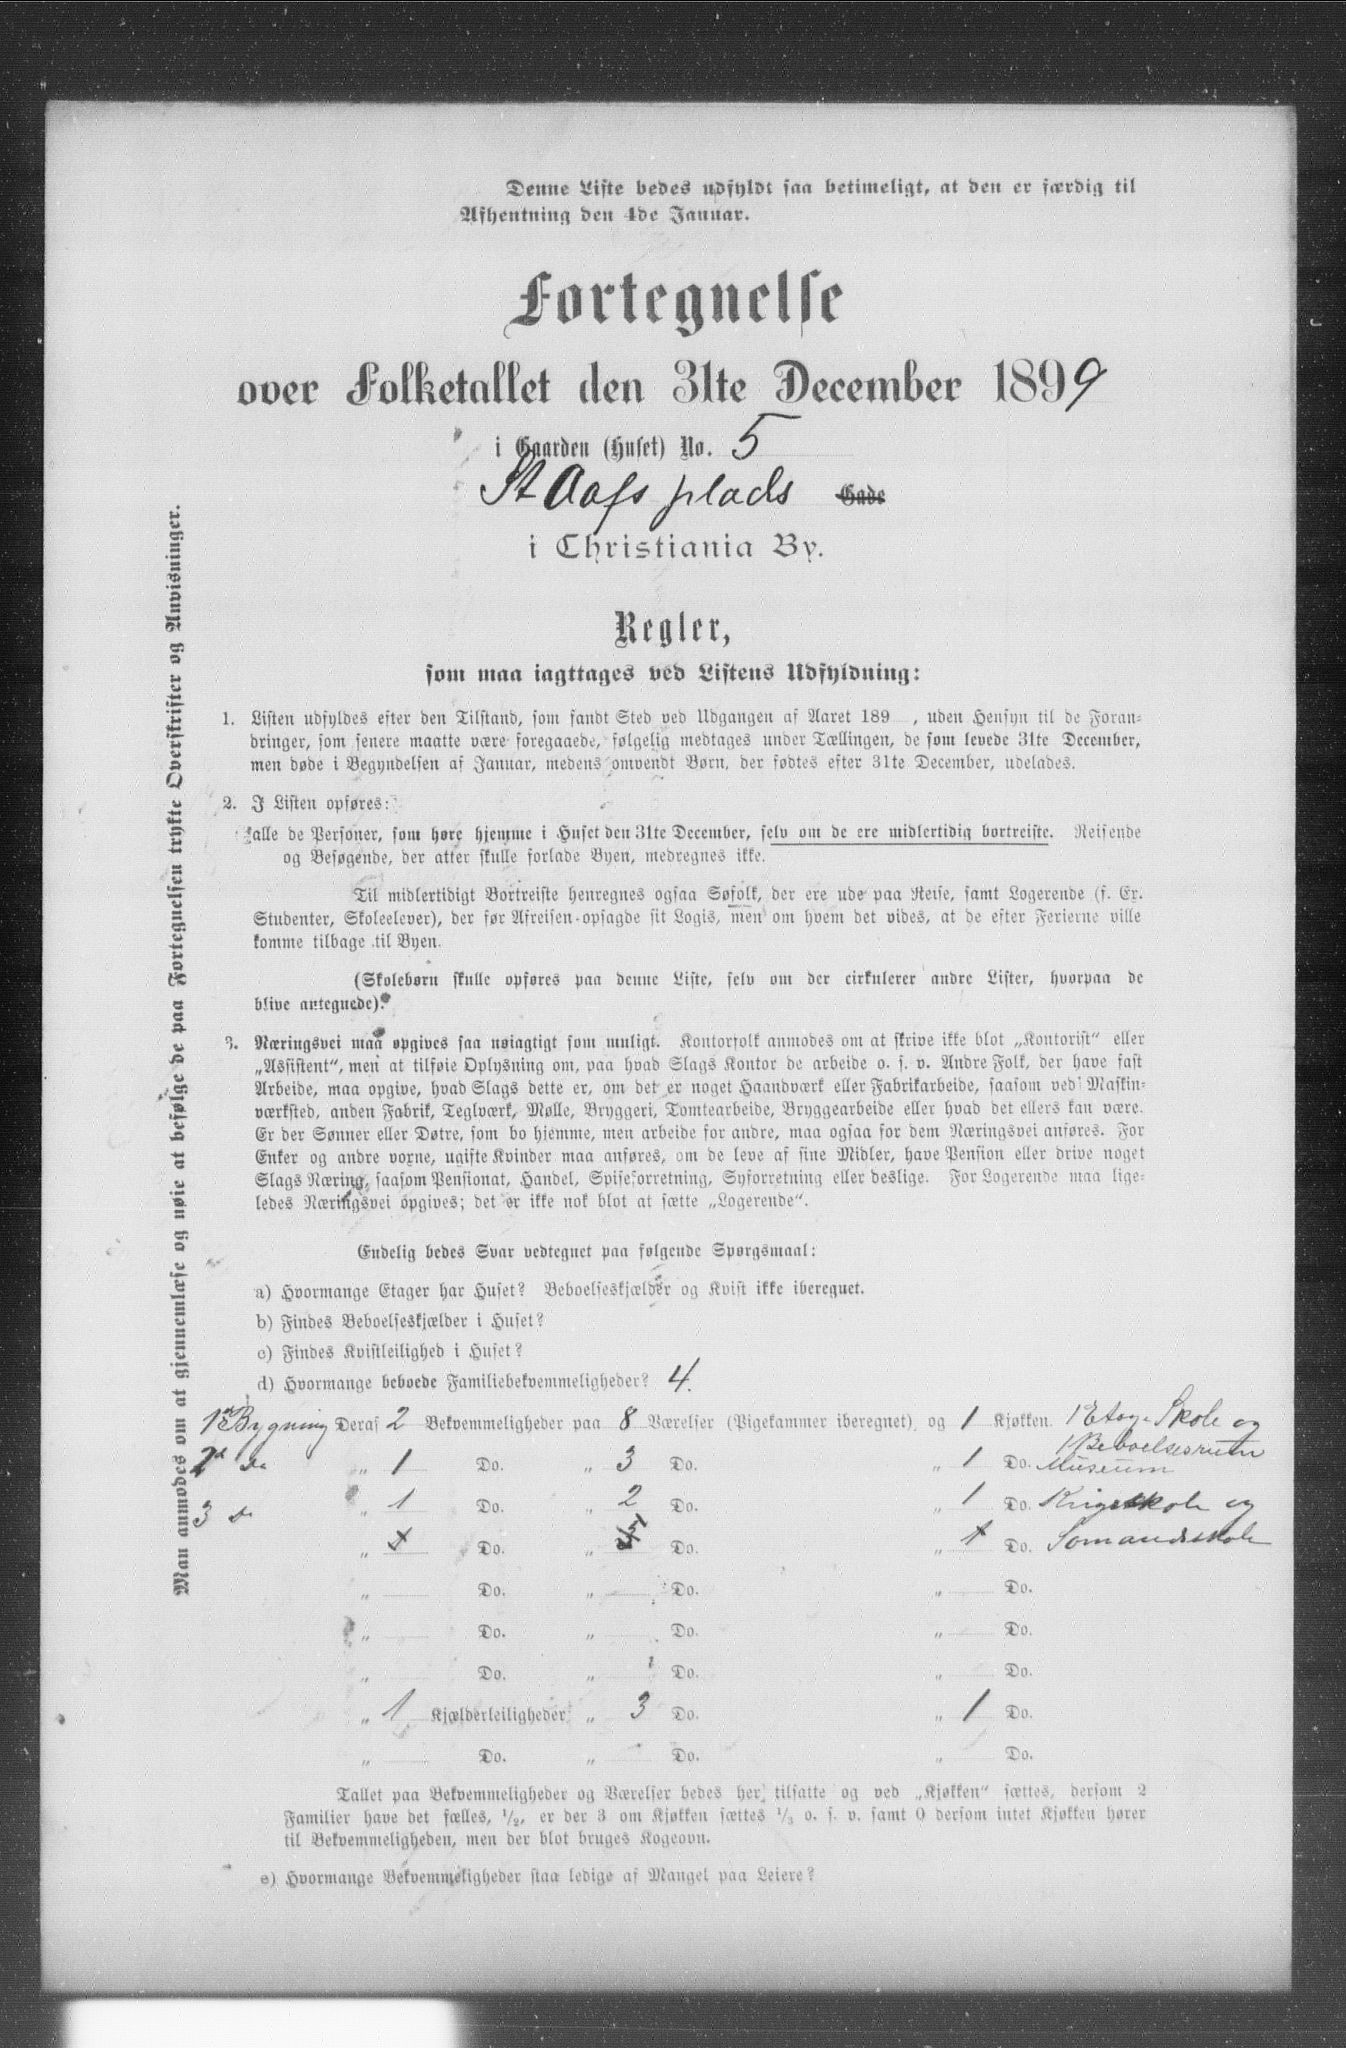 Denne Liste bedes udfyldt saa betimeligt, at den er færdig til
Afhentning den 4de Januar.
Fortegnelse
over Folketallet den 31te December 1899
i Gaarden (Huset) No. 5
St Oafs plads Gade
i Christiania By.
Regler,
som maa iagttages ved Listens Udfyldning:
1. Listen udfyldes efter den Tilstand, som fandt Sted ved Udgangen af Aaret 189 , uden Hensyn til de Foran-
dringer, som senere maatte være foregaaede, følgelig medtages under Tællingen, de som levede 31te December,
men døde i Begyndelsen af Januar, medens omvendt Børn, der fødtes efter 31te December, udelades.
2. I Listen opføres:
alle de Personer, som høre hjemme i Huset den 31te December, selv om de ere midlertidig bortreiste. Reisende
og Besøgende, der atter skulle forlade Byen, medregnes ikke.
Til midlertidigt Bortreiste henregnes ogsaa Søfolk, der ere ude paa Reise, samt Logerende (f. Ex.
Studenter, Skoleelever), der før Afreisen opsagde sit Logis, men om hvem det vides, at de efter Ferierne ville
komme tilbage til Byen.
(Skolebørn skulle opføres paa denne Liste, selv om der cirkulerer andre Lister, hvorpaa de
blive antegnede).
3. Næringsvei maa opgives saa nøiagtigt som muligt. Kontorfolk anmodes om at skrive ikke blot „Kontorist“ eller
„Assistent“, men at tilføie Oplysning om, paa hvad Slags Kontor de arbeide o. s. v. Andre Folk, der have fast
Arbeide, maa opgive, hvad Slags dette er, om det er noget Haandværk eller Fabrikarbeide, saasom ved Maskin-
værksted, anden Fabrik, Teglværk, Mølle, Bryggeri, Tomtearbeide, Bryggearbeide eller hvad det ellers kan være.
Er der Sønner eller Døtre, som bo hjemme, men arbeide for andre, maa ogsaa for dem Næringsvei anføres. For
Enker og andre voxne, ugifte Kvinder maa anføres, om de leve af sine Midler, have Pension eller drive noget
Slags Næring, saasom Pensionat, Handel, Spiseforretning, Syforretning eller deslige. For Logerende maa lige-
ledes Næringsvei opgives; det er ikke nok blot at sætte „Logerende“.
Endelig bedes Svar vedtegnet paa følgende Spørgsmaal:
a) Hvormange Etager har Huset? Beboelseskjælder og Kvist ikke iberegnet.
b) Findes Beboelseskjælder i Huset?
c) Findes Kvistleilighed i Huset?
d) Hvormange beboede Familiebekvemmeligheder? 4.
Bygning Deraf 2 Bekvemmeligheder paa 8 Værelser (Pigekammer iberegnet) og 1 Kjøkken. 1 Etage Skole og
1 Beboelsesrum
2 do „ 1 Do. „ 3 Do. „ 1 Do. Museum
3 do „ 1 Do. „ 2 Do. „ 1 Do. Krigsskole og
„ 1 Do. „ 5 Do. „ 1 Do. Sømandsskole
„ Do. „ Do. „ Do.
„ Do. „ Do. „ Do.
„ Do. „ Do. „ Do.
„ 1 Kjælderleiligheder „ 3 Do. „ 1 Do.
„ Do. „ Do. „ Do.
Tallet paa Bekvemmeligheder og Værelser bedes her tilsatte og ved „Kjøkken“ sættes, dersom 2
Familier have det fælles, 1/2, er der 3 om Kjøkken sættes 1/3 o. s. v. samt 0 dersom intet Kjøkken hører
til Bekvemmeligheden, men der blot bruges Kogeovn.
e) Hvormange Bekvemmeligheder staa ledige af Mangel paa Leiere?
Man anmodes om at gjennemlæse og nøie at befølge de paa Fortegnelsen trykte Overskrifter og Anvisninger.